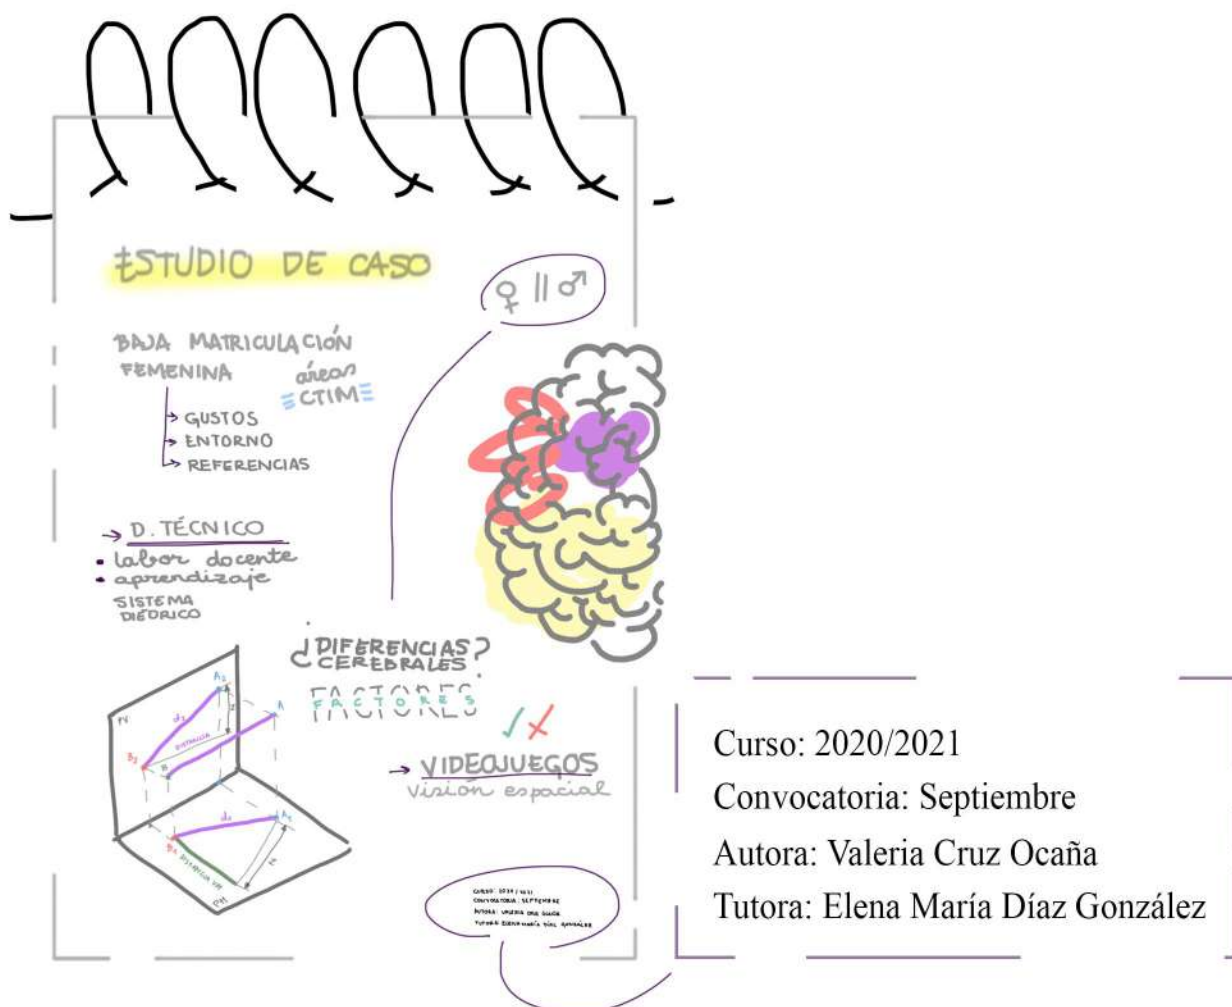 ESTUDIO DE CASO
♀ || ♂
BAJA MATRICULACIÓN
FEMENINA
áreas
CTIM
GUSTOS
ENTORNO
REFERENCIAS
D. TÉCNICO
labor docente
aprendizaje
SISTEMA
DIÉDRICO
¿DIFERENCIAS?
CEREBRALES
FACTORES
FACTORES
VIDEOJUEGOS
visión espacial
PV
A2
d2
A
DISTANCIA
B2
B
d1
A1
B1
PH
CURSO: 2020/2021
CONVOCATORIA: SEPTIEMBRE
AUTORA: VALERIA CRUZ OCAÑA
TUTORA: ELENA MARÍA DÍAZ GONZÁLEZ
Curso: 2020/2021
Convocatoria: Septiembre
Autora: Valeria Cruz Ocaña
Tutora: Elena María Díaz González